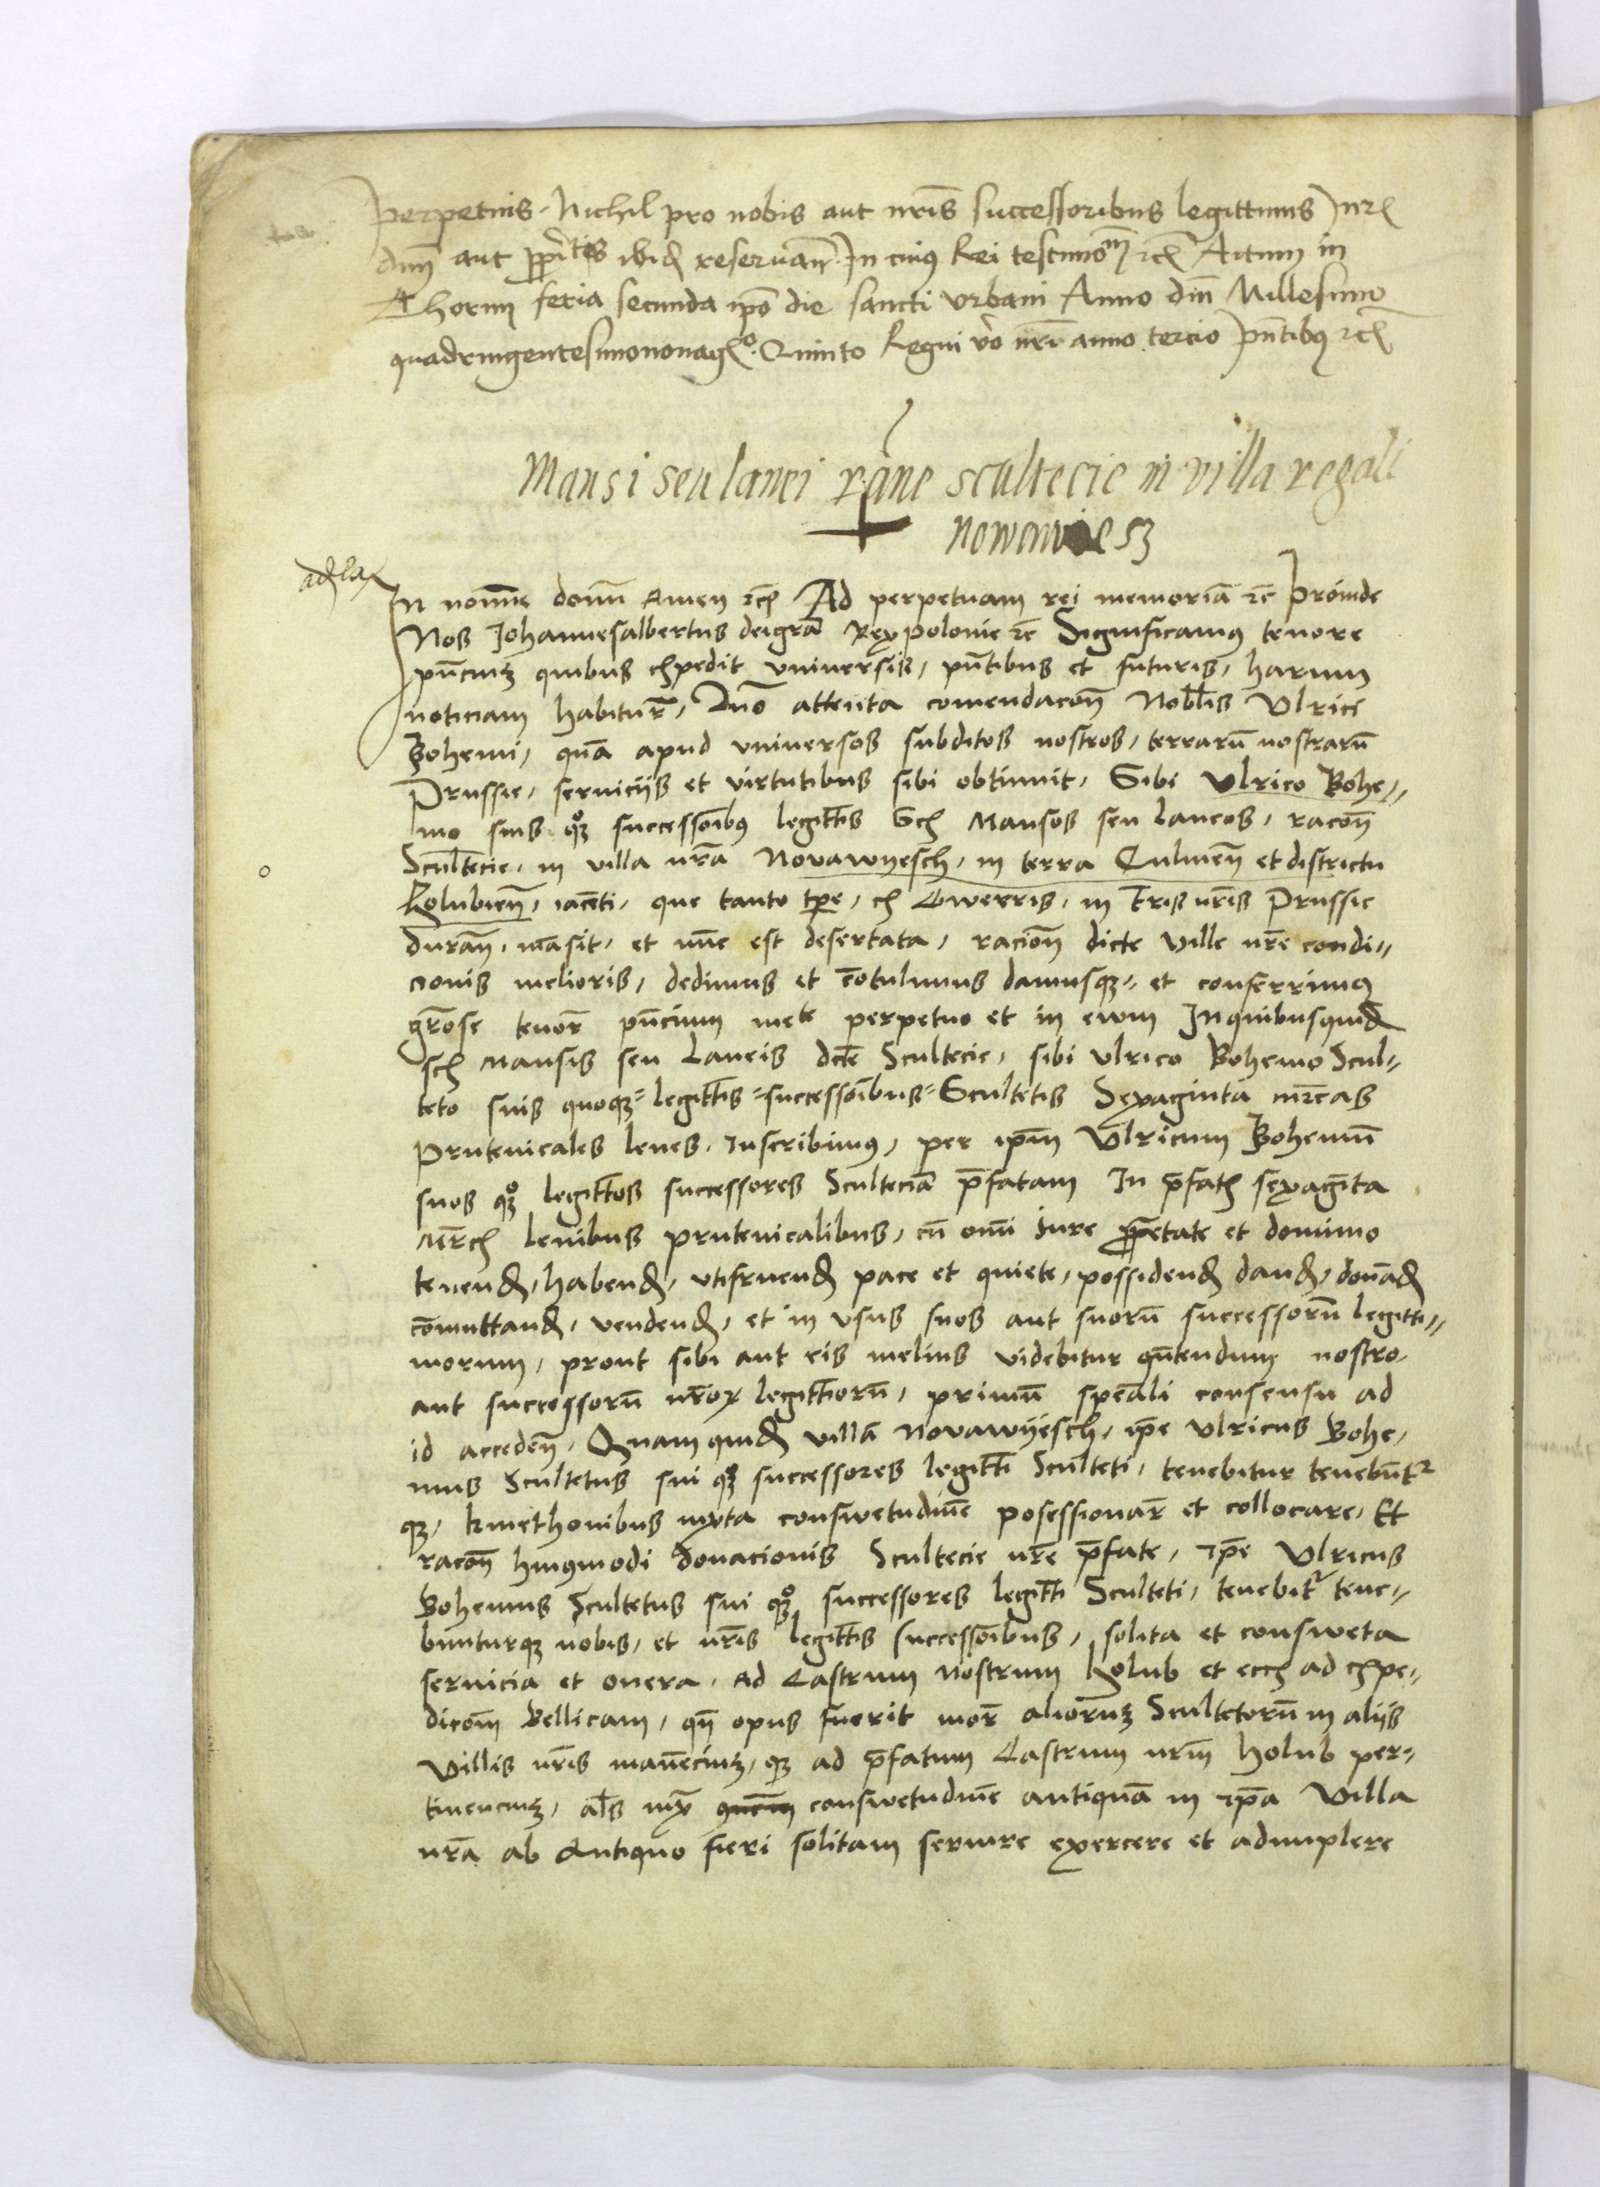 perpetuis. Nichil pro nobis aut nr̄is successoribus legittimis Jure
dnīj aut ꝓpr̄itis ibid reseruan̄. In cuiꝰ Rei testimo^m ꝛc̄ Actum in
Thorun feria secunda ip̄o die sancti Vrbani Anno dn̄i Millesimo
quadringentesimononag^o. Quinto Regni v̄o nr̄i anno tercio Pn̄tibꝰ ꝛc̄
Mansi seu lanei r̄ane scultecie in villa regali
nowawiesz
In nomine domī Amen ꝛc̄ Ad perpetuam rei memoriā ꝛc̄ Proinde
Nos Johannesalbertus deigr̄a Rex polonie ꝛc̄ Significamꝰ tenore
pn̄ciuꝫ quibus expedit vniuersis, pn̄tibus et futuris, harum
noticiam habitur̄, Quō attenta comendacōn̄ Nobl̄is Vlrici
Bohemi, quā apud vniuersos subditos nostros, terrarū nostrarū
Prussie, seruiciis et virtutibus sibi obtinuit, Sibi Vlrico Bohe〃
mo suis qꝫ° successōibꝰ legitt̄is Sex Mansos seu laneos, racōn̄
Scultecie, in villa nr̄a Novawyesch, in terra Culmen̄ et districtu
Kolubien̄, iacēti, que tanto tp̄e, ex Gwerris, in tr̄is nr̄is Prussie
duran̄, māsit, et nūc est desertata, raciōn̄ dicte ville nr̄e condi〃
cionis melioris, dedimus et cōtulimus damusqꝫ〃 et conferrimꝰ
gr̄ose tenor̄ pn̄cium mete perpetuo et in ewm Inquibusquid
sex Mansis seu Laneis dctē Scultecie, sibi Vlrico Bohemo Scul〃
teto suis quoqꝫ〃 legitt̄is〃 successōibus〃 Scultetis Sexaginta mr̄cas
Prutenicales leues, Inscribimꝰ, per ip̄m Vlricum Bohemū
suos qꝫ° legitt̄os successores Sculteciā p̄fatam In p̄fatꝭ sexagīta
Mr̄cꝭ leuibus prutenicalibus, cū omī Jure ꝓpr̄etate et dominio
tenend, habend, vtifruend pace et quiete, possidend dand, donād
cōmuttand, vendend, et in vsus suos aut suorū successorū legitti〃
morum, prout sibi aut eis melius videbitur qn̄tendum nostro
aut successorū nr̄oꝝ legitt̄iorū, primū speāli consensu ad
id acceden̄, Quam quid villā novawyesch, ip̄e Vlricus Bohe〃
mus Scultetus sui qꝫ° successores legitt̄i Sculteti, tenebitur tenebūt^r
qꝫ, kmethonibus iuxta conswetudinē posessionar̄ et collocare, Et
racōn̄ huiꝰmodi donacionis Scultecie nr̄e p̄fate, ip̄e Vlricus
Bohemus Scultetus sui qꝫ° successores legitt̄i Sculteti, tenebit^r tene〃
bunturqꝫ nobis, et nr̄is legitt̄is successōibus, solita et consweta
seruicia et onera, Ad Castrum nostrum Kolub et eciꝫ ad expe〃
dicōm̄ Bellicam, qn̄ opus fuerit mor̄ alioruꝫ Scultetorū in aliis
villis nr̄is manēciuꝫ, qꝫ ad p̄fatum Castrum nr̄m Kolub per〃
tinenciuꝫ, als̄ iux̄ conswetudinē antiquā in ip̄a Villa
nr̄a ab Antiquo fieri solitam seruire exercere et adimplere